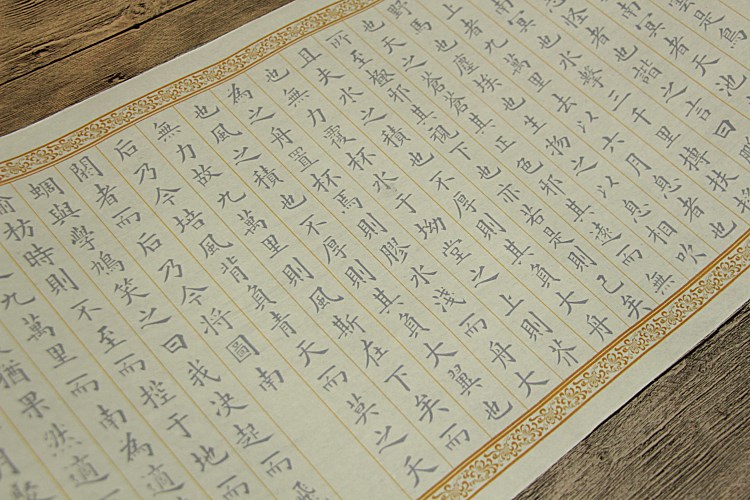 雲是鳥
南冥者天池
怪者也諧之言曰鵬
南冥也水擊三千里摶扶搖
上者九萬里去以六月息者也
野馬也塵埃也生物之以息相吹
也天之蒼蒼其正色邪其遠而無
所至極邪其視下也亦若是則已矣
且夫水之積也不厚則其負大舟
也無力覆杯水于坳堂之上則芥
為之舟置杯焉則膠水淺而舟大
也風之積也不厚則其負大翼也
無力故九萬里則風斯在下矣而
后乃今培風背負青天而莫之夭
閼者而后乃今將圖南
蜩與學鳩笑之曰我决起而飛
榆枋時則不至而控于地
九萬里而南為適
猶果然適
月聚